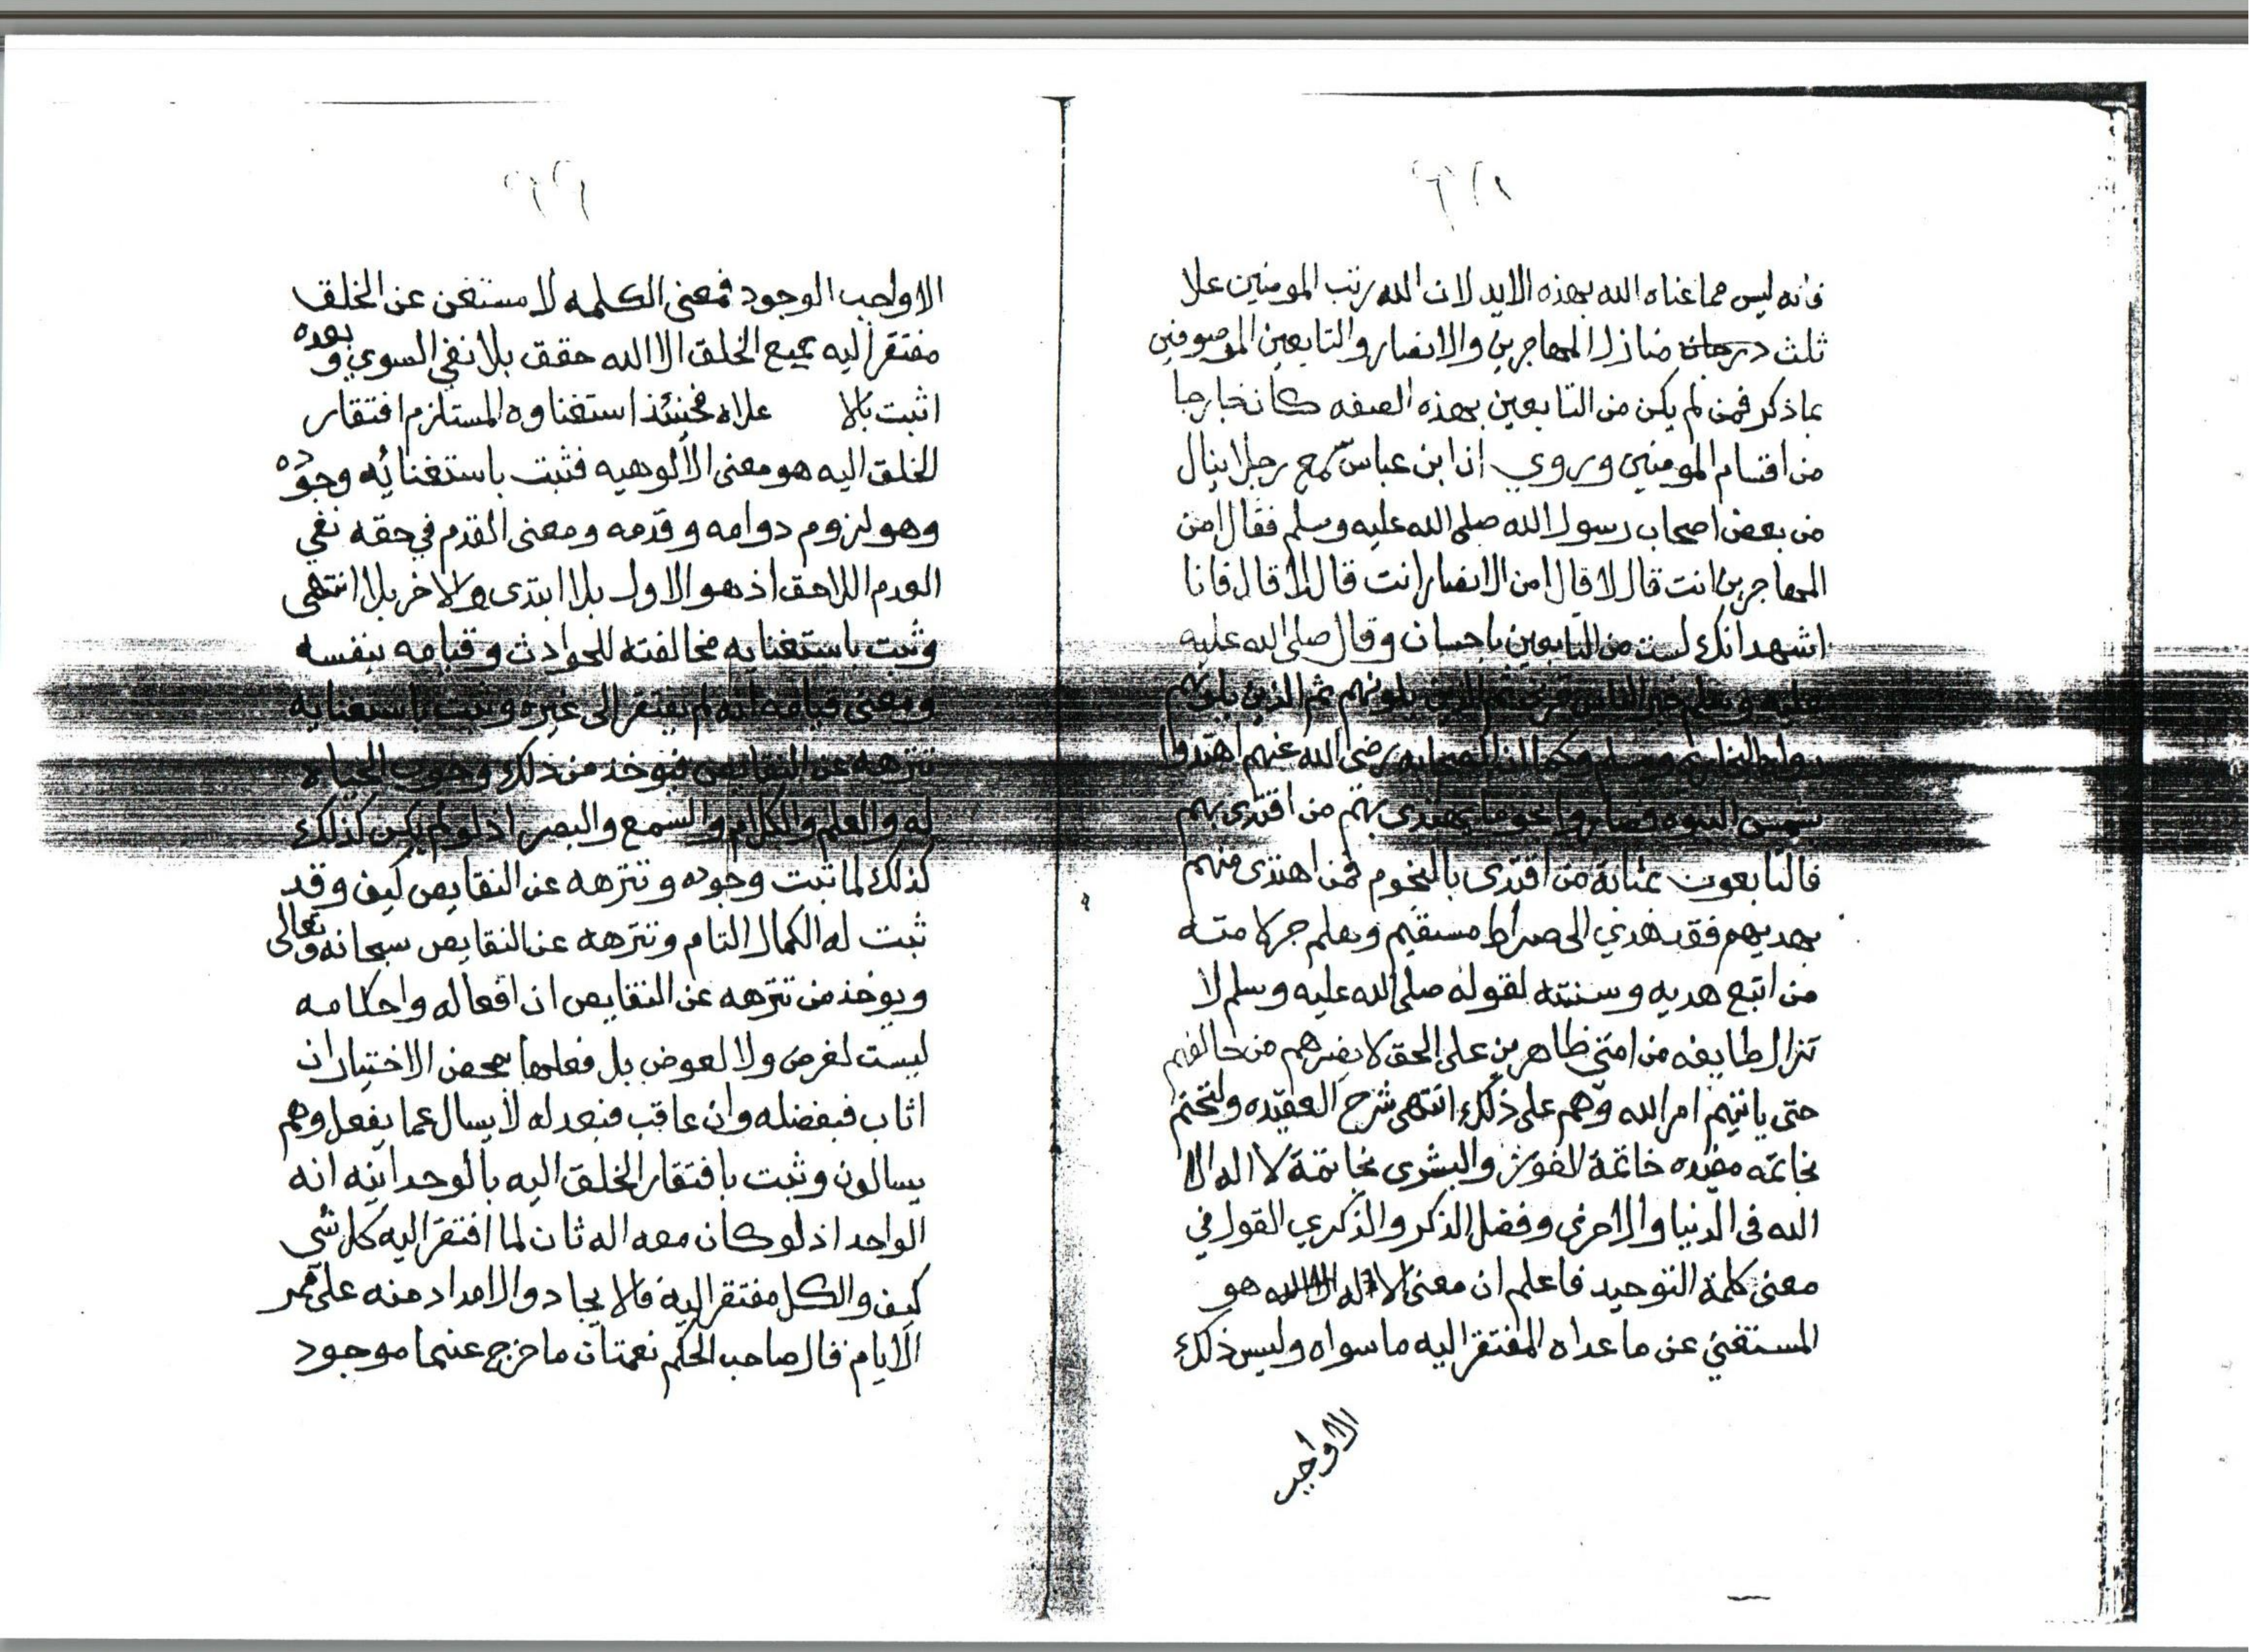 فانه ليس مما عناه الله بهذه الايه لان الله رتب المومنين علا
ثلث درجات منازل المهاجرين والانصار والتابعين الموصوفين
بما ذكر فمن لم يكن من التابعين بهذه الصفه كان خارجا
من اقسام المومنين وروي ان ابن عباس سمع رجلا ينال
من بعض اصحاب رسول الله صلى الله عليه وسلم فقال امن
المهاجرين انت قال لا قال امن الانصار انت قال لا قال فانا
اشهد انك لست من التابعين باحسان وقال صلى الله عليه
عليه وسلم خير الناس قرني ثم الذين يلونهم ثم الذين يلونهم
رواه البخاري ومسلم وكما ان الصحابه رضي الله عنهم اهتدوا
بشمس النبوه فصاروا نجوما يهتدى بهم من اقتدى بهم
فالتابعون بمثابة من اقتدى بالنجوم فمن اهتدى منهم
بهديهم فقد هدي الى صراط مستقيم وهلم جرا لامته
من اتبع هديه وسنته لقوله صلى الله عليه وسلم لا
تزال طايفه من امتي ظاهرين على الحق لا يضرهم من خالفهم
حتى ياتيهم امر الله وهم على ذلك انتهى شرح العقيده ولنختم
بخاتمه مفيده خاتمة الفوز والبشرى بخاتمة لا اله الا
الله في الدنيا والاخرى وفضل الذكر والذكري القول في
معنى كلمة التوحيد فاعلم ان معنى لا اله الا الله هو
المستغني عن ما عداه المفتقر اليه ما سواه وليس ذلك
الا واجب
الا واجب الوجود فمعنى الكلمه لا مستغن عن الخلق
مفتقر اليه جميع الخلق الا الله حقق بلا نفي السوي وبعده
اثبت بالا علاه فحينئذ استغناوه المستلزم افتقار
الخلق اليه هو معنى الألوهيه فثبت باستغنائه وجوده
وهو لزوم دوامه وقدمه ومعنى القدم في حقه نفي
العدم اللاحق اذ هو الاول بلا ابتدى والاخر بلا انتهى
وثبت باستغنايه مخالفته للحوادث وقيامه بنفسه
ومعنى قيامه انه لم يفتقر الى غيره وثبت باستغنايه
تنزهه عن النقايص فيوخذ من ذلك وجوب الحياه
له والعلم والكلام والسمع والبصر اذ لو لم يكن كذلك
كذلك لما ثبت وجوده وتنزهه عن النقايص كيف وقد
ثبت له الكمال التام وتنزهه عن النقايص سبحانه وتعالى
ويوخذ من تنزهه عن النقايص ان افعاله واحكامه
ليست لغرض ولا لعوض بل فعلها بمحض الاختيار ان
اثاب فبفضله وان عاقب فبعدله لا يسال عما يفعل وهم
يسالون وثبت بافتقار الخلق اليه بالوحدانيه انه
الواحد اذ لو كان معه اله ثان لما افتقر اليه كل شي
كيف والكل مفتقر اليه فالايجاد والامداد منه على ممر
الايام قال صاحب الحكم نعمتان ما خرج عنهما موجود